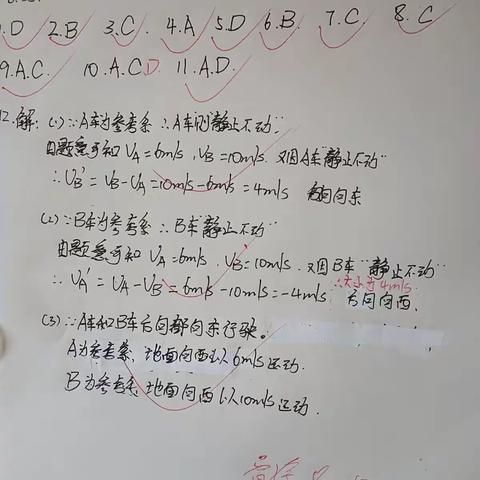 1.D 2.B 3.C. 4.A 5.D 6.B. 7.C 8.C
9.A.C. 10.A.CD. 11.A.D.
12.解: (1)∵A车为参考系 ∴A车则"静止不动".
由题意可知 VA=6m/s, VB=10m/s. 又因A车"静止不动"
∴VB'=VB-VA=10m/s-6m/s=4m/s 方向向东
(2)∵B车为参考系 ∴B车"静止不动"
由题意可知 VA=6m/s. VB=10m/s. 又因B车"静止不动"
∴大小为4m/s.
∴VA'=VA-VB=6m/s-10m/s=-4m/s 方向向西.
(3)∵A车和B车方向都向东行驶。
A为参考系, 地面向西以6m/s运动.
B为参考系 地面向西以10m/s运动.